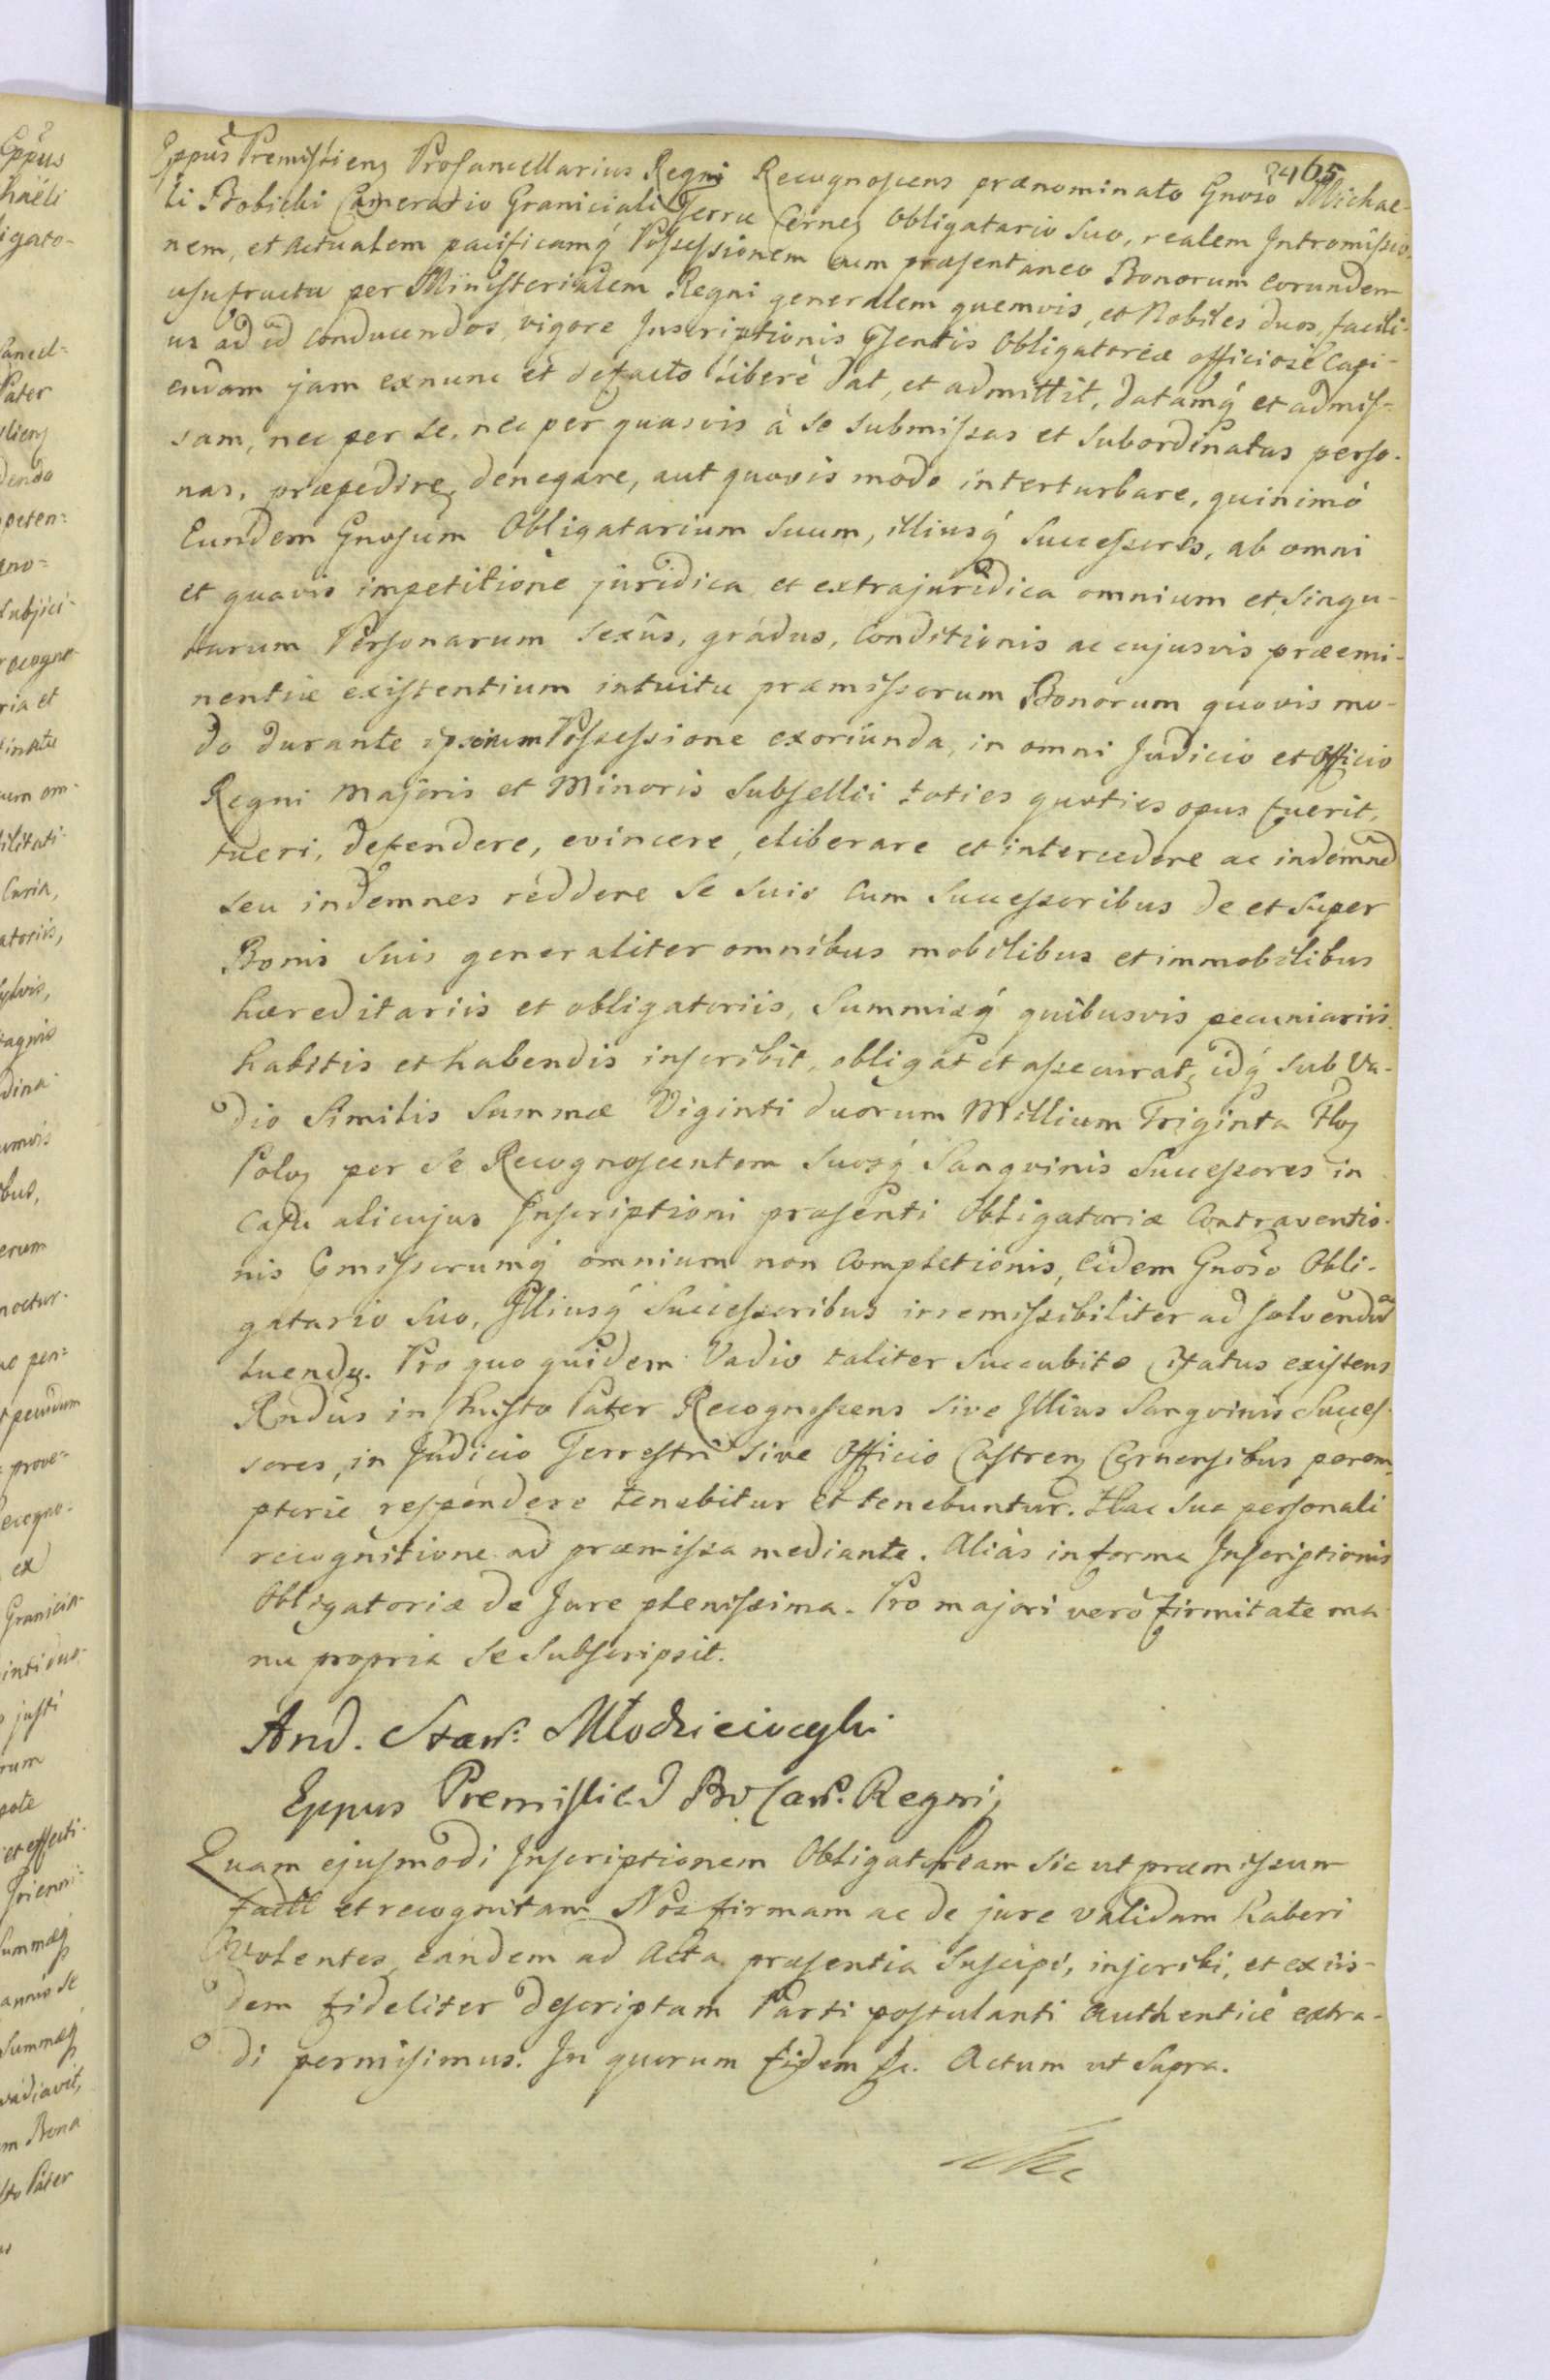 2465
Eppus Premislien Procancellarius Regni Recognoscens prænominato Gnoso Michae-
li Bobicki Camerario Graniciali Terræ Cernen Obligatario Suo, realem Intromissio-
nem, et actualem pacificamq́ Possessionem cum præsentaneo Bonorum eorundem
usufructu per Ministerialem Regni generalem quemvis, et Nobiles duos, facili-
us ad id conducendos, vigore Inscriptionis Psentis Obligatoriæ officiosè Capi-
endam jam exnunc et defacto liberè Dat, et admittit, Datamq́ et admis-
sam, nec per se, nec per quasvis à se submissas et subordinatas perso-
nas, præpedire, denegare, aut quovis modo interturbare, quinimò
Eundem Gnosum Obligatarium Suum, illiusq́ Successores, ab omni
et quavis impetitione juridica et extrajuridica omnium et singu-
larum Personarum Sexûs, gradus, Conditionis ac cujusvis præemi-
nentiæ existentium intuitu præmissorum Bonorum quovis mo-
do durante Possessione exoriunda, in omni Judicio et Officio
Regni Majoris et Minoris Subsellii toties quoties opus fuerit,
tueri, defendere, evincere, eliberare et intercedere ac indemnē
seu indemnes reddere se suis Cum Successoribus de et super
Bonis Suis generaliter omnibus mobilibus et immobilibus
hæreditariis et obligatoriis, Summisq́ quibusvis pecuniariis
habitis et habendis inscribit, obligat et assecurat, idq́ sub Va-
dio Similis Summæ Viginti duorum Millium Triginta Flo
Polo per se Recognoscentem Suosq́ Sangvinis Successores in
Casu alicujus Inscriptioni præsenti Obligatoriæ Contraventio-
nis Pmissorumq́ omnium non Completionis, Eidem Gnoso Obli-
gatario Suo, Illiusq́ Successoribus irremissibiliter ad solvendū
luendo. Pro quo quidem Vadio taliter succubito Citatus existens
Rndus in Christo Pater Recognoscens sive Illius Sangvinis Succes-
sores, in Judicio Terrestri sive Officio Castren Cernensibus perem-
ptorie respondere tenebitur et tenebuntur. Hac sua personali
recognitione ad præmissa mediante. Aliàs in forma Inscriptionis
Obligatoriæ de Jure plenissima. Pro majori verò firmitate ma-
nu propria se Subscripsit.
And. Stan. Młodzieiowski
Eppus Premislie Pro Can. Regni
Quam ejusmodi Inscriptionem Obligatoream sic ut præmissum
factā et recognitam Nos firmam ac de jure validam haberi
Volentes, eandem ad Acta præsentia Suscipi, inscribi, et exiis-
dem fideliter descriptam Parti postulanti Authenticè extra-
di permisimus. In quorum fidem &c. Actum ut Supra.